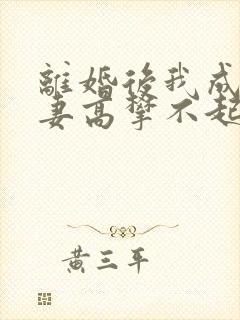 離婚後我成
妻高攀不起
黃三平